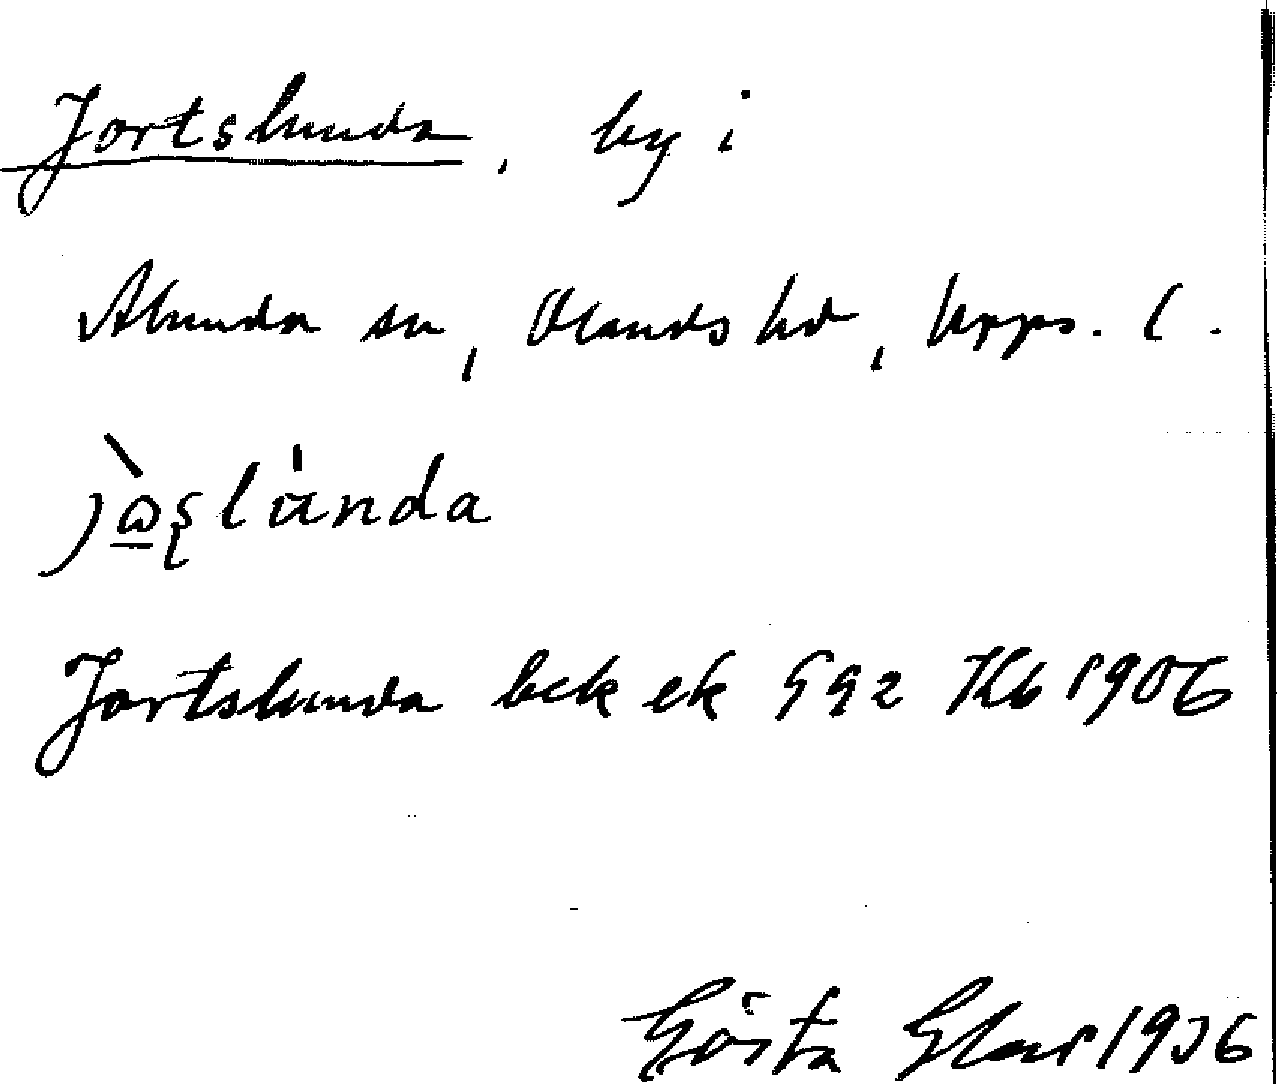 Jortslunda, by i
Alunda sn, Olands hd, Upps. l.
jòslúnda
Jortslunda bek ek 992 Kb 1906
Gösta Elar 1936